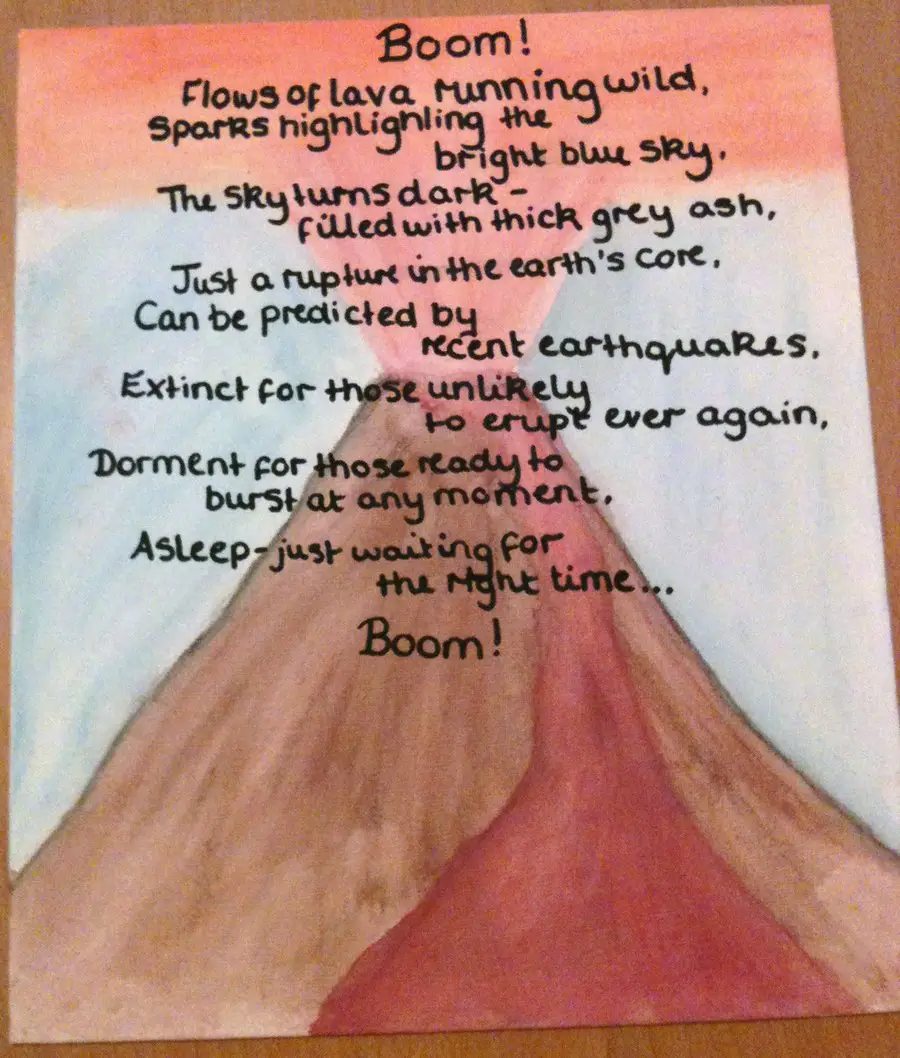 Boom!
Flows of lava running wild,
Sparks highlighting the
bright blue sky.
The sky turns dark -
filled with thick grey ash,
Just a rupture in the earth's core,
Can be predicted by
recent earthquakes,
Extinct for those unlikely
to erupt ever again,
Dorment for those ready to
burst at any moment,
Asleep - just waiting for
the right time...
Boom!